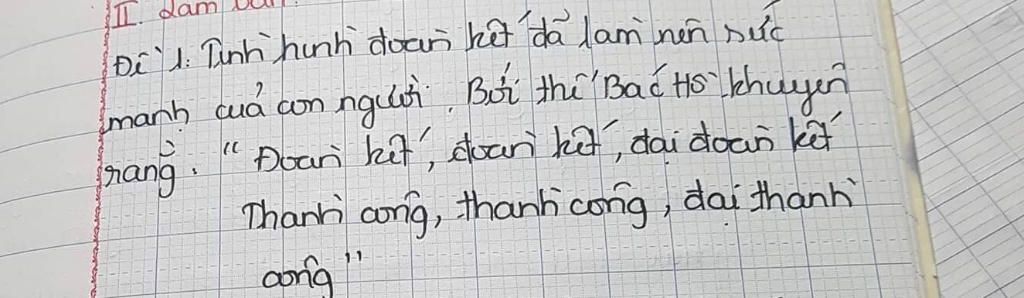 II. Làm văn
Đề 1: Tình hình đoàn kết đã làm nên sức
mạnh của con người. Bởi thế Bác Hồ khuyên
rằng: "Đoàn kết, đoàn kết, đại đoàn kết
Thành công, thành công, đại thành
công"